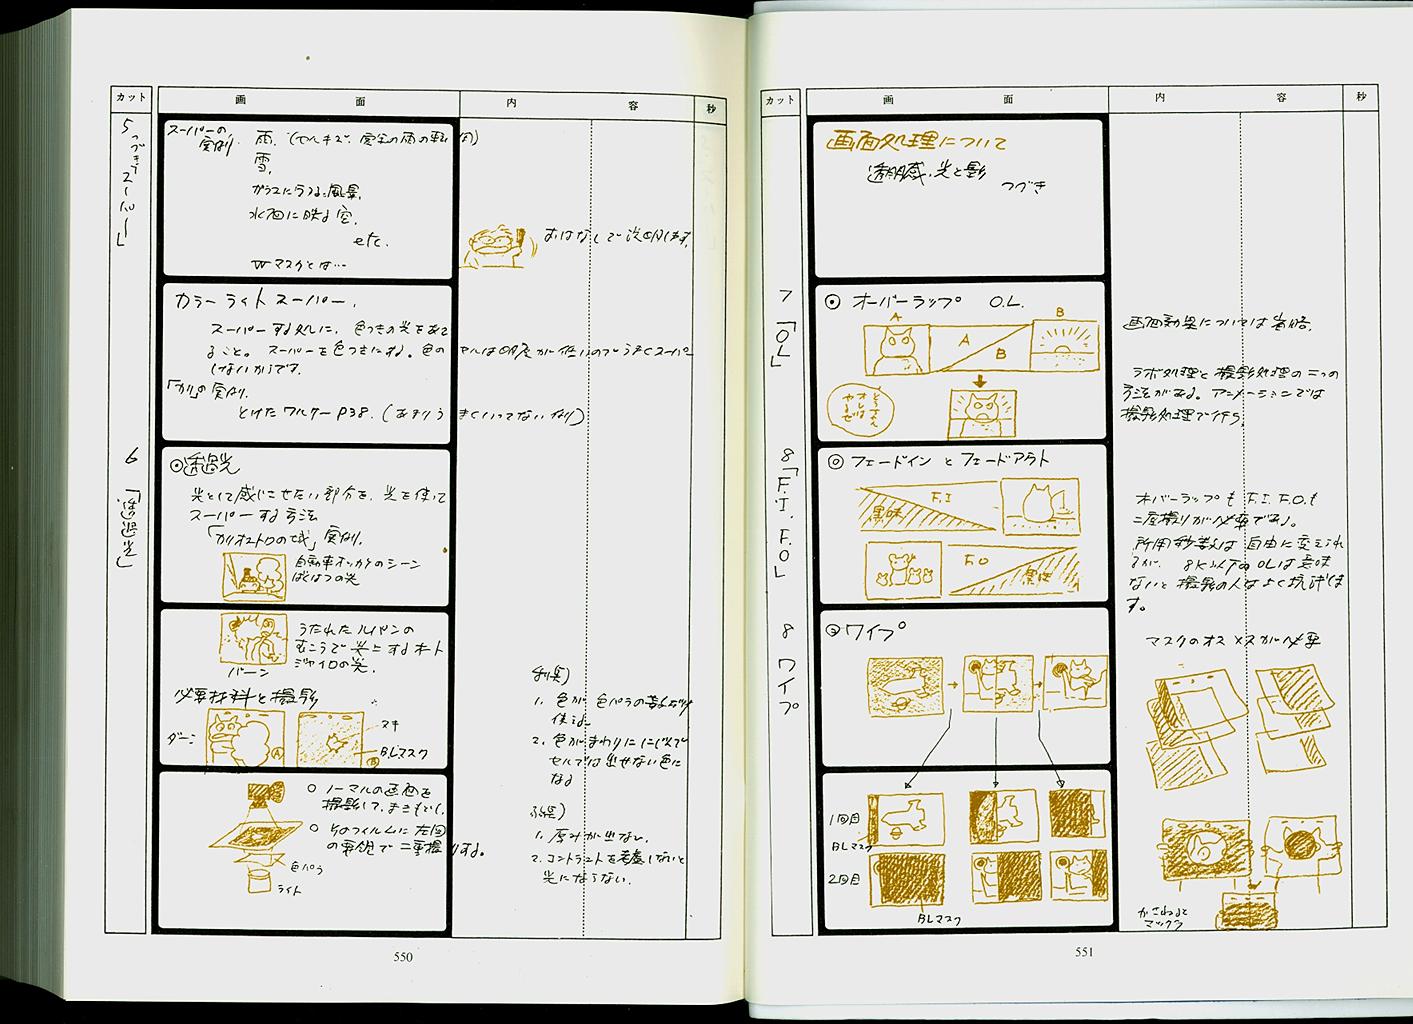 カット
画
面
内
容
秒
5
つづき
「スーパー」
スーパーの実例
雨.
雪.
ガラスにうつる風景.
水面に映る空.
etc.
Wマスクとは…
おはなしで説明します.
カラーライトスーパー.
スーパーする処に、色つきの光をあて
ること。スーパーを色つきにする。色の
セルは明度が低いのでうまくスーパー
しないからです.
の実例.
とけたワルサーP38.(あまりうまくいってないなり)
6
「透過光」
◎透過光
光として感じさせたい部分を、光を使って
スーパーする方法
「カリオストロの城」実例.
自動車オッカケのシーン
ばくはつの光
うたれたルパンの
むこうで炎上するオート
ジャイロの光.
バーン
必要材料と撮影
ダーン
A
B
ヌキ
BLマスク
利点)
1. 色が色パラの数だけ
使える
2. 色がまわりににじんで
セルでは出せない色に
なる
○ ノーマルの画面を
撮影して、まきもどし.
○ そのフィルムに左図
の要領で二重撮りする。
色パラ
ライト
欠点)
1. 厚みが出ない.
2. コントラストを考慮しないと
光にならない.
550
カット
画
面
内
容
秒
画面処理について
透明感・光と影
つづき
7
「OL」
◎ オーバーラップ O.L.
A
B
A
B
画面効果については省略.
ラボ処理と撮影処理の二つの
方法がある。アニメーションでは
撮影処理で行う.
8
「F.I. F.O」
◎ フェードインとフェードアウト
F.I
黒味
F.O
黒味
オバーラップも F.I. F.O.も
二度撮りが必要である。
所用秒数は自由に変えられ
るが、8K以下のOLは意味
ないと撮影の人はよく抗ギしま
す。
8
ワイプ
◎ワイプ
マスクのオス メスが必要
1回目
BLマスク
2回目
BLマスク
かさねると
マックラ
551